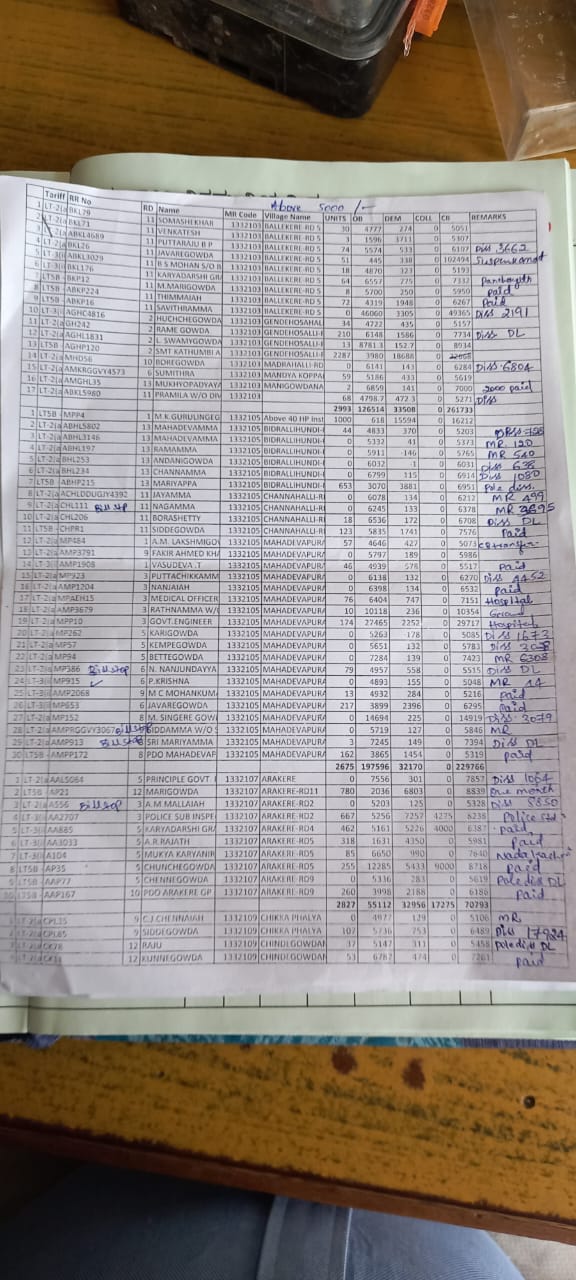 Above 5000/-
Tariff RR No RD Name MR Code Village Name UNITS OB DEM COLL CB REMARKS
1 LT-2(a BKL79 11 SOMASHEKHAR 1332103 BALLEKERE-RD 5 30 4777 274 0 5051
2 BKL71 11 VENKATESH 1332103 BALLEKERE-RD 5 3 1596 3711 0 5307
3 LT-2(a ABKL4689 11 PUTTARAJU B P 1332103 BALLEKERE-RD 5 74 5574 533 0 6107 Diss 3662
4 LT-2(a BKL26 11 JAVAREGOWDA 1332103 BALLEKERE-RD 5 51 445 338 0 102494
5 LT-3(i ABKL3029 11 B S MOHAN S/O B 1332103 BALLEKERE-RD 5 18 4870 323 0 5193
6 LT-3(i BKL176 11 KARYADARSHI GRA 1332103 BALLEKERE-RD 5 64 6557 775 0 7332
7 LT5B - BKP12 11 M.MARIGOWDA 1332103 BALLEKERE-RD 5 8 5700 250 0 5950 Paid
8 LT5B - ABKP224 11 THIMMAIAH 1332103 BALLEKERE-RD 5 72 4319 1948 0 6267 Paid
9 LT5B - ABKP16 11 SAVITHRAMMA 1332103 BALLEKERE-RD 5 0 46060 3305 0 49365 Diss 2191
10 LT-3(i AGHC4816 2 HUCHCHEGOWDA 1332103 GENDEHOSAHAL 34 4722 435 0 5157
11 LT-2(a GH242 2 RAME GOWDA 1332103 GENDEHOSALLI-R 210 6148 1586 0 7734 Diss DL
12 LT-2(a AGHL1831 2 L SWAMYGOWDA 1332103 GENDEHOSALLI-R 13 8781.3 152.7 0 8934
13 LT5B - AGHP120 2 SMT KATHUMBI A 1332103 GENDEHOSALLI-R 2287 3980 18688 0 22668
14 LT-2(a MHD58 10 BOREGOWDA 1332103 MADRAHALLI-RD 0 6141 143 0 6284 Diss 6804
15 LT-2(a AMKRGGVY4573 6 SUMITHRA 1332103 MANDYA KOPPAL 59 5186 433 0 5619
16 LT-2(a AMGHL35 13 MUKHYOPADYAYA 1332103 MANIGOWDANA 2 6859 141 0 7000 2000 paid
17 LT-2(a ABKL5980 11 PRAMILA W/O DIV 1332103 68 4798.7 472.3 0 5271 Diss
2993 126514 33508 0 261733
1 LT5B - MPP4 1 M.K.GURULINGEG 1332105 Above 40 HP Inst 1000 618 15594 0 16212
2 LT-2(a ABHL5802 13 MAHADEVAMMA 1332105 BIDRALLIHUNDI-R 44 4833 370 0 5203
3 LT-2(a ABHL3146 13 MAHADEVAMMA 1332105 BIDRALLIHUNDI-R 0 5332 41 0 5373 MR 120
4 LT-2(a ABHL197 13 RAMAMMA 1332105 BIDRALLIHUNDI-R 0 5911 -146 0 5765 MR 540
5 LT-2(a BHL253 13 ANDANIGOWDA 1332105 BIDRALLIHUNDI-R 0 6032 -1 0 6031 Diss 638
6 LT-2(a BHL234 13 CHANNAMMA 1332105 BIDRALLIHUNDI-R 0 6799 115 0 6914 Diss 1080
7 LT5B - ABHP215 13 MARIYAPPA 1332105 BIDRALLIHUNDI-R 653 3070 3881 0 6951 Pole diss.
8 LT-2(a ACHLDDUGJY4392 11 JAYAMMA 1332105 CHANNAHALLI-RI 0 6078 134 0 6212 MR 499
9 LT-2(a CHL111 Bill stop 11 NAGAMMA 1332105 CHANNAHALLI-RI 0 6245 133 0 6378 MR 3695
10 LT-2(a CHL206 11 BORASHETTY 1332105 CHANNAHALLI-RI 18 6536 172 0 6708 Diss DL
11 LT5B - CHPR1 11 SIDDEGOWDA 1332105 CHANNAHALLI-RI 123 5835 1741 0 7576 Paid
12 LT-2(a MP484 1 A.M. LAKSHMIGOW 1332105 MAHADEVAPURA 57 4646 427 0 5073
13 LT-2(a AMP3791 9 FAKIR AHMED KHA 1332105 MAHADEVAPURA 0 5797 189 0 5986
14 LT-3(i AMP1908 1 VASUDEVA .T 1332105 MAHADEVAPURA 46 4939 578 0 5517 Paid
15 LT-2(a MP323 3 PUTTACHIKKAMM 1332105 MAHADEVAPURA 0 6138 132 0 6270 Diss 4452
16 LT-2(a AMP1204 3 NANJAIAH 1332105 MAHADEVAPURA 0 6398 134 0 6532 Paid
17 LT-2(a MPAEH15 3 MEDICAL OFFICER 1332105 MAHADEVAPURA 76 6404 747 0 7151 Hospital
18 LT-2(a AMP3679 3 RATHNAMMA W/O 1332105 MAHADEVAPURA 10 10118 236 0 10354
19 LT-2(a MPP10 3 GOVT.ENGINEER 1332105 MAHADEVAPURA 174 27465 2252 0 29717 Hospital
20 LT-2(a MP262 5 KARIGOWDA 1332105 MAHADEVAPURA 0 5263 -178 0 5085 Diss 1673
21 LT-2(a MP57 5 KEMPEGOWDA 1332105 MAHADEVAPURA 0 5651 132 0 5783 Diss 3078
22 LT-2(a MP94 5 BETTEGOWDA 1332105 MAHADEVAPURA 0 7284 139 0 7423 MR 6308
23 LT-2(a MP386 Bill stop 6 N. NANJUNDAYYA 1332105 MAHADEVAPURA 79 4957 558 0 5515 Diss DL
24 LT-3(i MP915 6 P.KRISHNA 1332105 MAHADEVAPURA 0 4893 155 0 5048 MR 14
25 LT-3(i AMP2068 9 M C MOHANKUMA 1332105 MAHADEVAPURA 13 4932 284 0 5216 Paid
26 LT-3(i MP653 6 JAVAREGOWDA 1332105 MAHADEVAPURA 217 3899 2396 0 6295 Paid
27 LT-2(a MP152 8 M. SINGERE GOW 1332105 MAHADEVAPURA 0 14694 225 0 14919 Diss 3079
28 LT-2(a AMPRGGVY3067 Bill stop 8 SIDDAMMA W/O S 1332105 MAHADEVAPURA 0 5719 127 0 5846 MR
29 LT-2(a AMP913 Bill stop 8 SRI MARIYAMMA 1332105 MAHADEVAPURA 3 7245 149 0 7394 Diss DL
30 LT5B - AMPP172 8 PDO MAHADEVAP 1332105 MAHADEVAPURA 162 3865 1454 0 5319 Paid
2675 197596 32170 0 229766
1 LT-2(a AAL5084 5 PRINCIPLE GOVT. 1332107 ARAKERE 0 7556 301 0 7857 Diss 1064
2 LT5B - AP21 12 MARIGOWDA 1332107 ARAKERE-RD11 780 2036 6803 0 8839 One month
3 LT-2(a A556 Bill stop 3 A.M.MALLAIAH 1332107 ARAKERE-RD2 0 5203 125 0 5328 Diss 5850
4 LT-3(i AA2707 3 POLICE SUB INSPE 1332107 ARAKERE-RD2 667 5256 7257 4275 8238 Police std
5 LT-3(i AA885 5 KARYADARSHI GRA 1332107 ARAKERE-RD4 462 5161 5226 4000 6387 Paid
6 LT-3(i AA3033 5 A.R.RAJATH 1332107 ARAKERE-RD5 318 1631 4350 0 5981 Paid
7 LT-3(i A104 5 MUKYA KARYANIR 1332107 ARAKERE-RD5 85 6650 990 0 7640
8 LT5B - AP35 5 CHUNCHEGOWDA 1332107 ARAKERE-RD5 255 12285 5433 9000 8718 Paid
9 LT5B - AAP77 5 CHENNEGOWDA 1332107 ARAKERE-RD9 0 5336 283 0 5619 Pole diss DL
10 LT5B - AAP167 5 PDO ARAKERE GP 1332107 ARAKERE-RD9 260 3998 2188 0 6186 Paid
2827 55112 32956 17275 70793
LT-2(a CPL35 9 C.J CHENNAIAH 1332109 CHIKKA PHALYA 0 4977 129 0 5106 MR
LT-2(a CPL85 9 SIDDEGOWDA 1332109 CHIKKA PHALYA 107 5736 753 0 6489 Diss 17924
LT-2(a CK78 12 RAJU 1332109 CHINDEGOWDAN 37 5147 311 0 5458 Pole diss DL
LT-2(a 12 KUNNEGOWDA 1332109 CHINDEGOWDAN 53 6787 474 0 7261 Paid